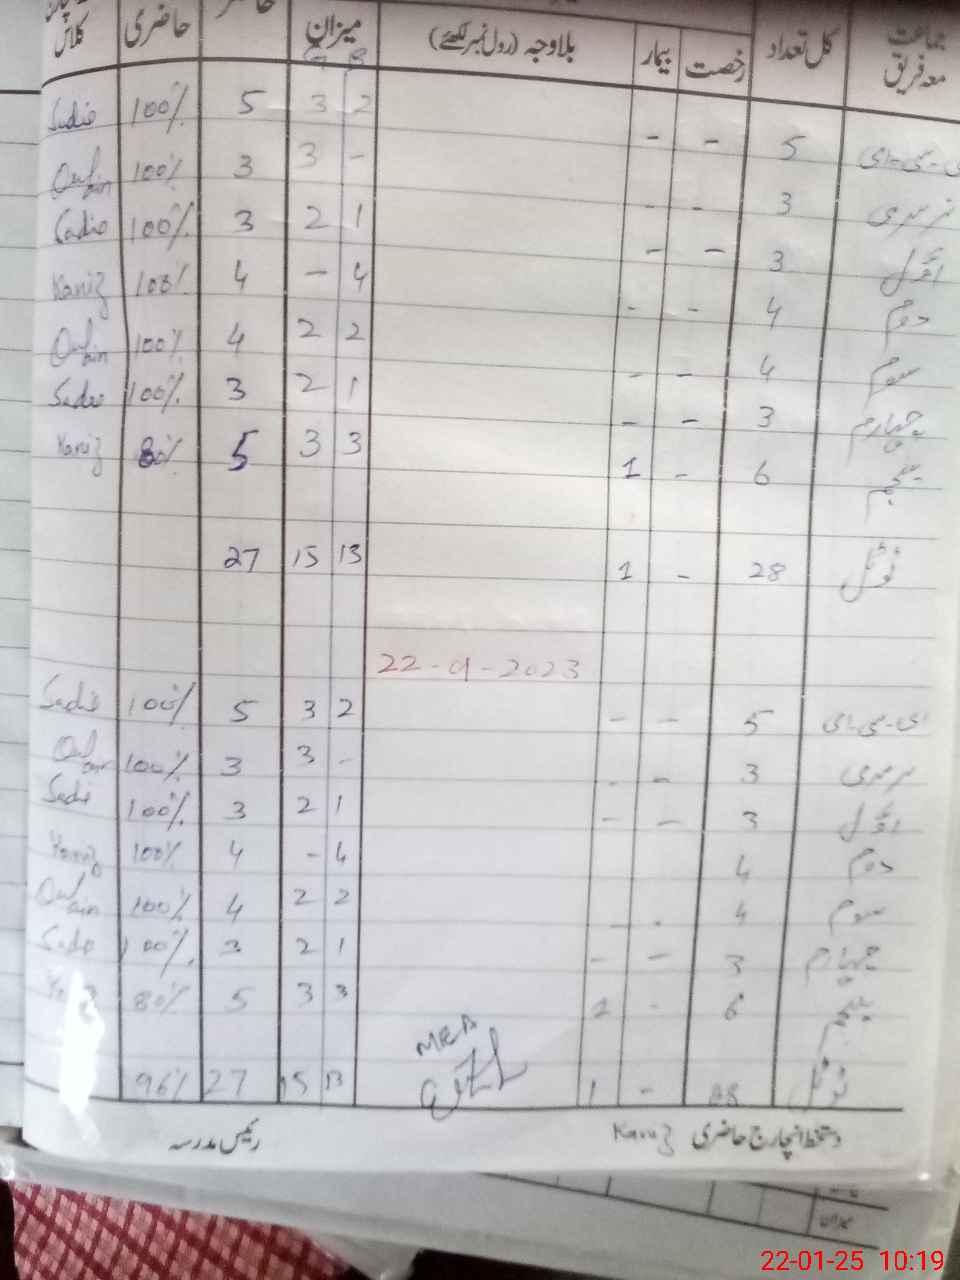 جماعت معہ فریق کل تعداد رخصت بیمار بلاوجہ (رول نمبر لکھئے) میزان حاضر حاضری کلاس
G B
ای-سی-ای 5 - - 2 3 5 100% Sadio
نرسری 3 - - - 3 3 100% Qurlain
اوّل 3 - - 1 2 3 100% Sadio
دوم 4 - - 4 - 4 100% Kaniz
سوم 4 - - 2 2 4 100% Qurlain
چہارم 3 - - 1 2 3 100% Sadio
پنجم 6 - 1 3 3 5 80% Kaniz
ٹوٹل 28 - 1 13 15 27
22-9-2023
ای-سی-ای 5 - - 2 3 5 100% Sadio
نرسری 3 - - - 3 3 100% Qurlain
اوّل 3 - - 1 2 3 100% Sadio
دوم 4 4 - 4 100% Kaniz
سوم 4 2 2 4 100% Qurlain
چہارم 3 - - 1 2 3 100% Sadio
پنجم 6 - 1 3 3 5 80%
MEA
ٹوٹل 28 - 1 13 15 27 96%
دستخط انچارج حاضری Kaniz رئیس مدرسہ
میزان
22-01-25 10:19